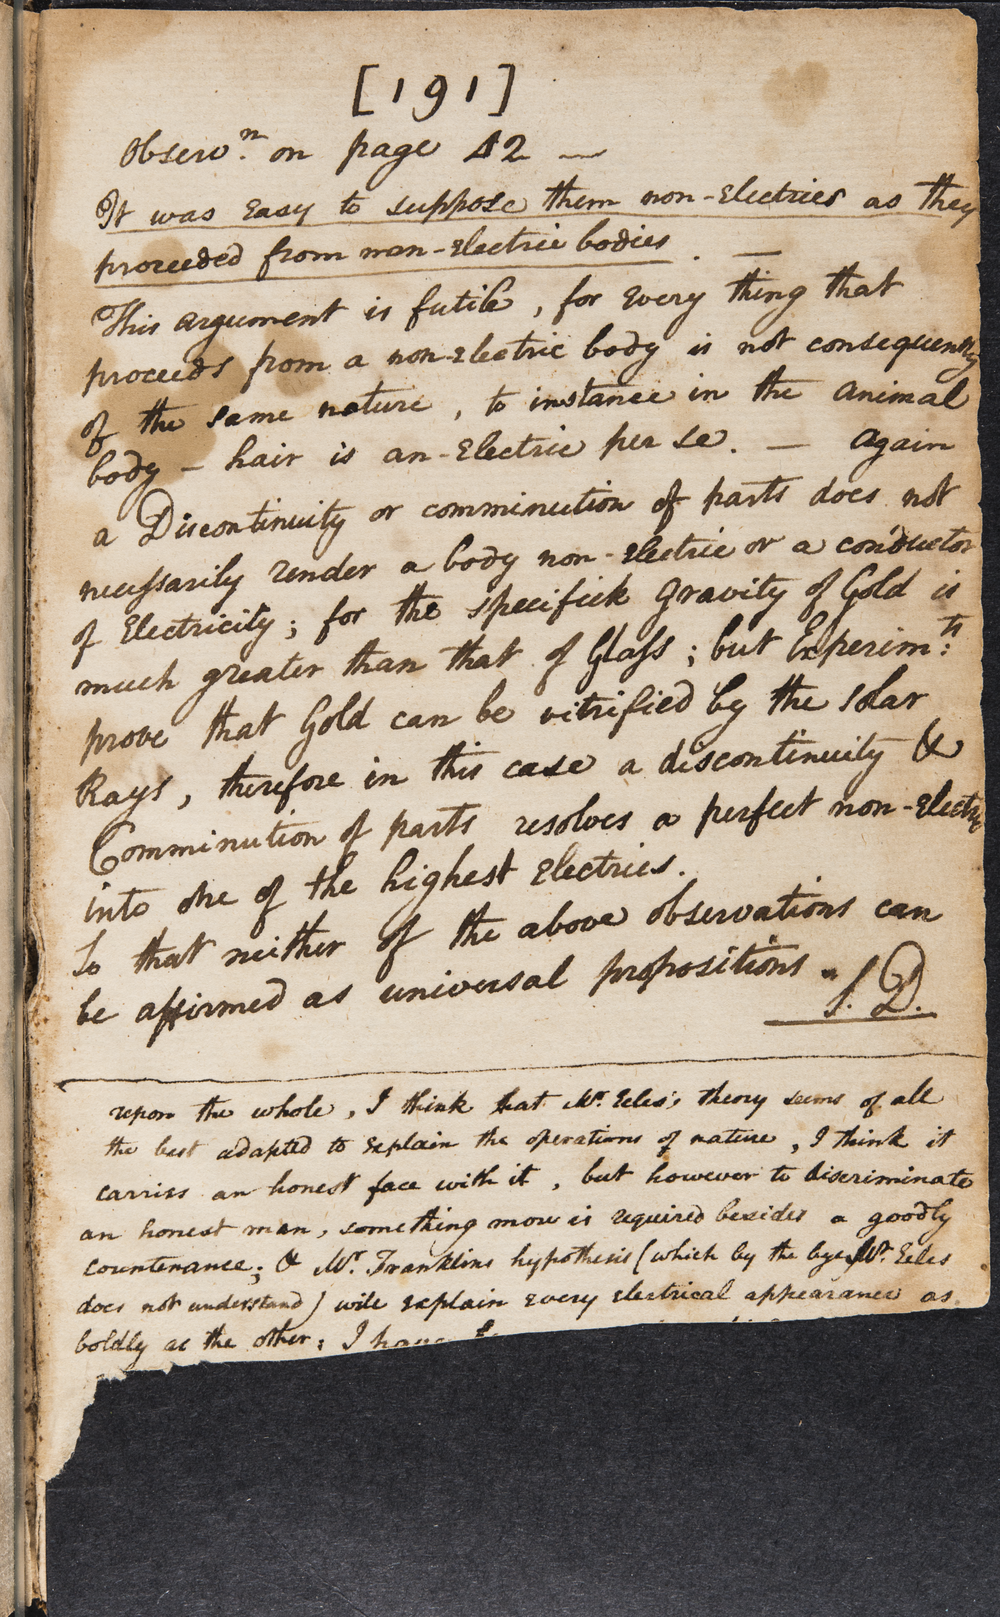 [191]
Observ.n on page 42 —
It was Easy to suppose them non-Electrics as they
proceeded from non-Electric bodies. —
This argument is futile, for Every thing that
proceeds from a non-Electric body is not consequently
of the same nature, to instance in the animal
body – hair is an-Electric per se. — again
a Discontinuity or comminution of parts does not
necessarily render a body non-Electric or a conductor
of Electricity; for the specifick gravity of Gold is
much greater than that of Glass; but Experim:ts
prove that Gold can be vitrified by the solar
Rays, therefore in this case a discontinuity &
Comminution of parts resolves a perfect non-Electric
into one of the highest Electrics.
So that neither of the above observations can
be affirmed as universal propositions. S. D.
upon the whole, I think that Mr. Eeles's theory seems of all
the best adapted to Explain the operations of nature, I think it
carries an honest face with it, but however to discriminate
an honest man, something more is required besides a goodly
countenance; & Mr. Franklins hypothesis (which by the bye Mr. Eeles
does not understand) will Explain Every Electrical appearance as
boldly as the other; I have